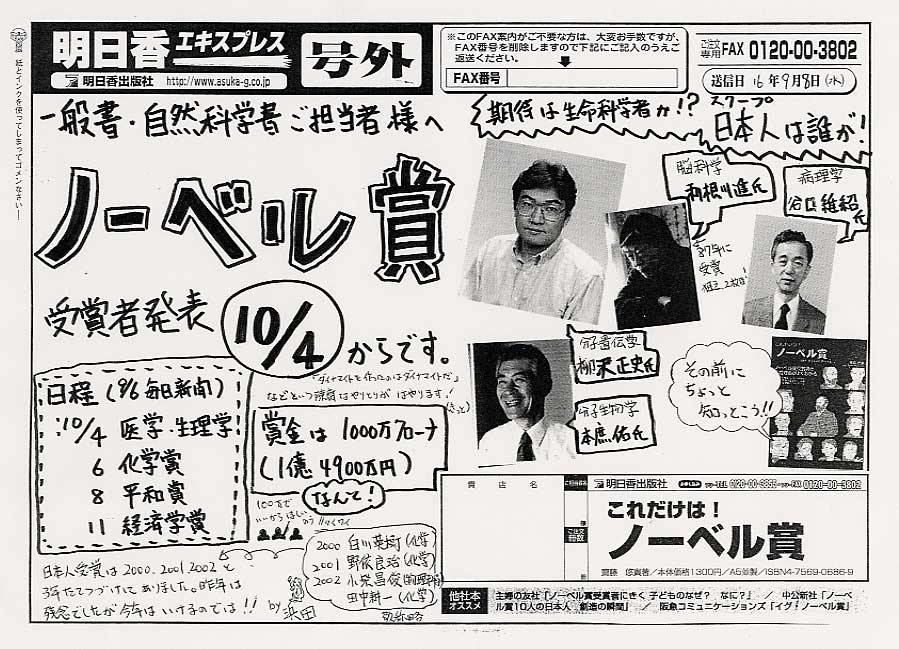 紙とインクを使ってしまってゴメンなさい―
明日香エキスプレス
明日香出版社 http://www.asuka-g.co.jp
号外
※このFAX案内がご不要な方は、大変お手数ですが、
FAX番号を削除しますので下記にご記入のうえご
返送ください。
FAX番号
ご注文専用 FAX 0120-00-3802
送信日 16年9月8日(水)
一般書・自然科学書ご担当者様へ
期待は生命科学者か!?
スクープ
日本人は誰が!
ノーベル賞
脳科学
利根川進氏
87年に
受賞
病理学
谷口維紹氏
受賞者発表 10/4 からです。
分子遺伝学
柳沢正史氏
分子生物学
本庶佑氏
その前に
ちょっと
知っとこう!!
ノーベル賞
日程(9/6 毎日新聞)
10/4 医学・生理学
6 化学賞
8 平和賞
11 経済学賞
「ダイナマイトを作ったのはダイナマイトだ」
などという陳腐なやりとりがはやります!
(きっと)
賞金は1000万クローナ
(1億4900万円)
なんて!
100万で
いーからほしい
2000 白川英樹(化学)
2001 野依良治(化学)
2002 小柴昌俊(物理学)
田中耕一(化学)
敬称略
日本人受賞は2000、2001、2002と
3年たてつづけにありました。昨年は
残念でしたが今年はいけるのでは!! by 浜田
貴店名
ご担当者名
様
ご注文冊数
冊
明日香出版社 0120-00-3802
これだけは!
ノーベル賞
齋藤 悠貴著/本体価格1300円/A5並製/ISBN4-7569-0686-9
他社本オススメ
主婦の友社「ノーベル賞受賞者にきく 子どものなぜ? なに?」 / 中公新社「ノーベ
ル賞10人の日本人 創造の瞬間」 / 阪急コミュニケーションズ「イグ・ノーベル賞」